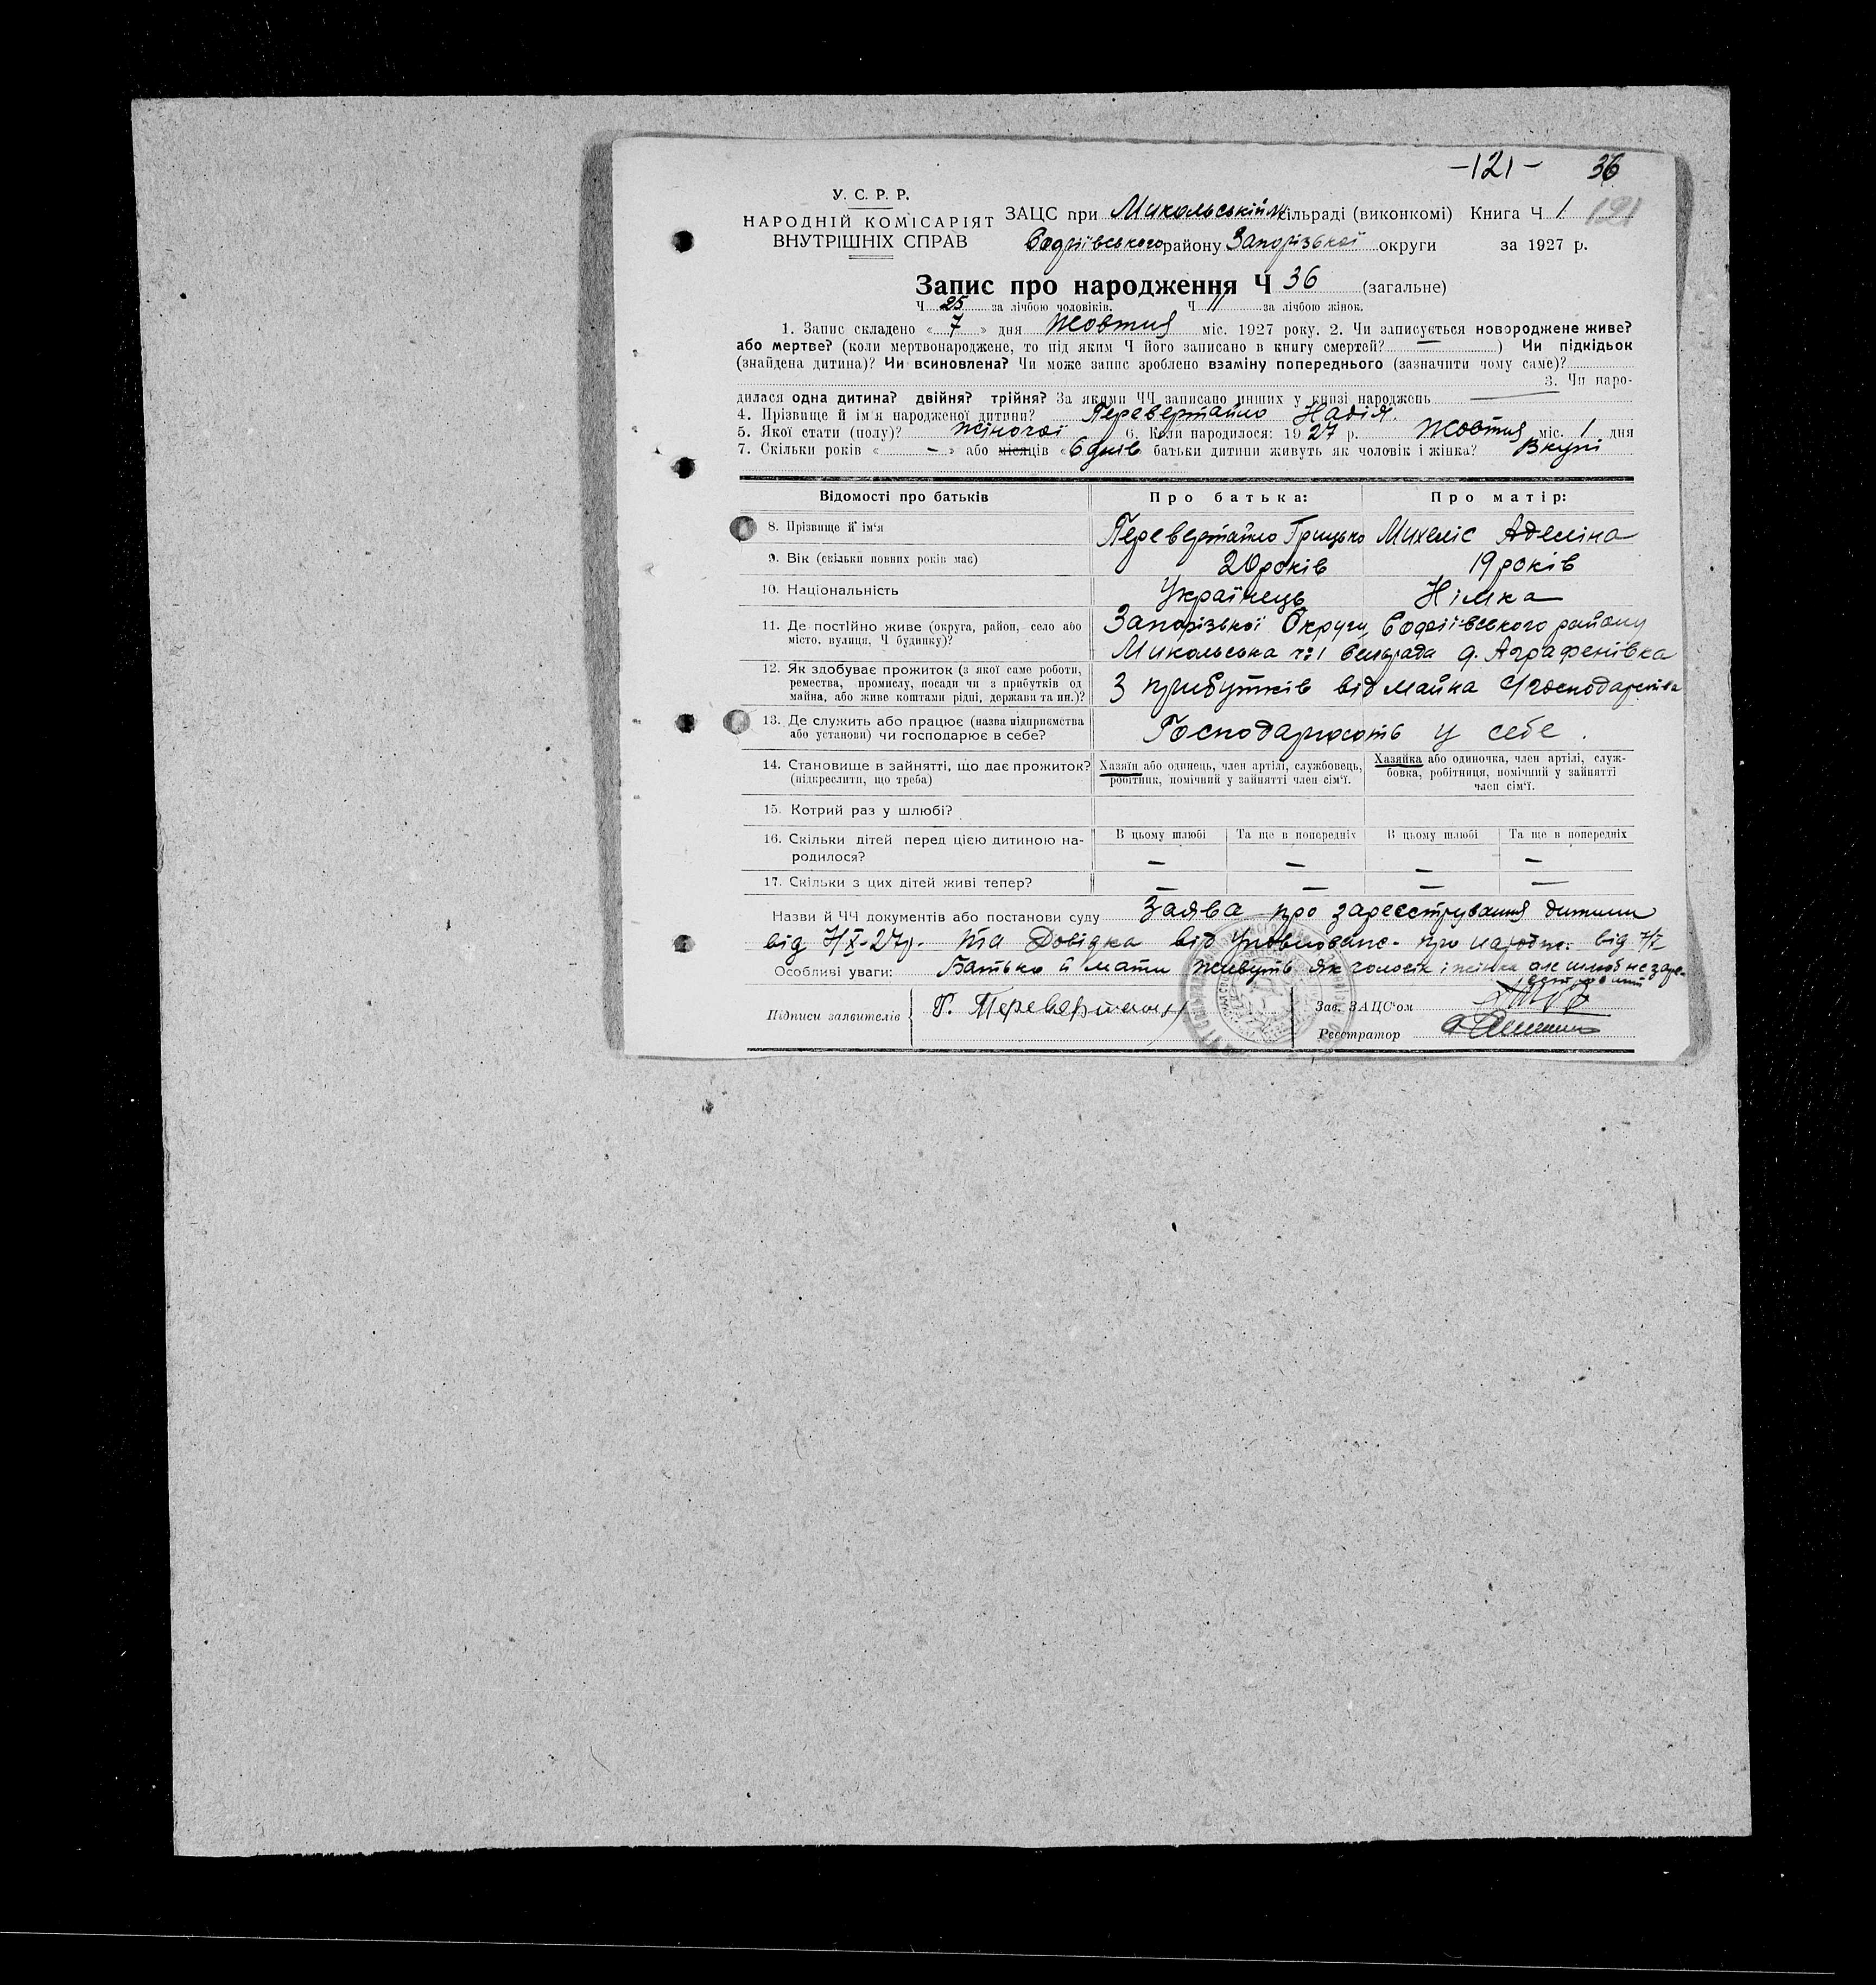 -121- 36
У. С. Р. Р.
НАРОДНІЙ КОМІСАРІЯТ
ВНУТРІШНІХ СПРАВ
ЗАЦС при Микольській сільраді (виконкомі) Книга Ч 1 121
Софіївського району Запорізької округи за 1927 р.
Запис про народження Ч 36 (загальне)
Ч 25 за лічбою чоловіків. Ч 11 за лічбою жінок.
1. Запис складено « 7 » дня Жовтня міс. 1927 року. 2. Чи записується новороджене живе?
або мертве? (коли мертвонароджене, то під яким Ч його записано в книгу смертей? — ) Чи підкідьок
(знайдена дитина)? Чи всиновлена? Чи може запис зроблено взаміну попереднього (зазначити чому саме)?
3. Чи наро-
дилася одна дитина? двійня? трійня? За якими ЧЧ записано инших у книзі народжень
4. Прізвище й ім'я народженої дитини? Перевертайло Надія.
5. Якої стати (полу)? Жіночої 6. Коли народилося: 1927 р. Жовтня міс. 1 дня
7. Скільки років « - » або місяців «6 днів батьки дитини живуть як чоловік і жінка? Вкупі
Відомості про батьків Про батька: Про матір:
8. Прізвище й ім'я Перевертайло Грицько Михеліс Аделіна
9. Вік (скільки повних років має) 20 років 19 років
10. Національність Українець Німка
11. Де постійно живе (округа, район, село або Запорізької Округи, Софіївського району
місто, вулиця, Ч будинку)? Микольська ч:1 сільрада д. Аграфенівка
12. Як здобуває прожиток (з якої саме роботи,
ремества, промислу, посади чи з прибутків од
майна, або живе коштами рідні, держави та ин.)? З прибутків від майна С/господарства
13. Де служить або працює (назва підприємства
або установи) чи господарює в себе? Господарюють у себе.
14. Становище в зайнятті, що дає прожиток?
(підкреслити, що треба)
Хазяїн або одинець, член артілі, службовець,
робітник, помічний у зайнятті член сім'ї.
Хазяйка або одиночка, член артілі, служ-
бовка, робітниця, помічний у зайнятті
член сім'ї.
15. Котрий раз у шлюбі?
16. Скільки дітей перед цією дитиною на-
родилося?
В цьому шлюбі Та ще в попередніх В цьому шлюбі Та ще в попередніх
— — — —
17. Скільки з цих дітей живі тепер? — — — —
Назви й ЧЧ документів або постанови суду Заява про зареєстрування дитини
від 7/X-27р. та Довідка від Уповноваж. про народж. від 7/X
Особливі уваги: Батько й мати живуть як чоловік і жінка але шлюб не заре-
Підписи заявителів Г. Перевертайло
Зав. ЗАЦС'ом
Реєстратор